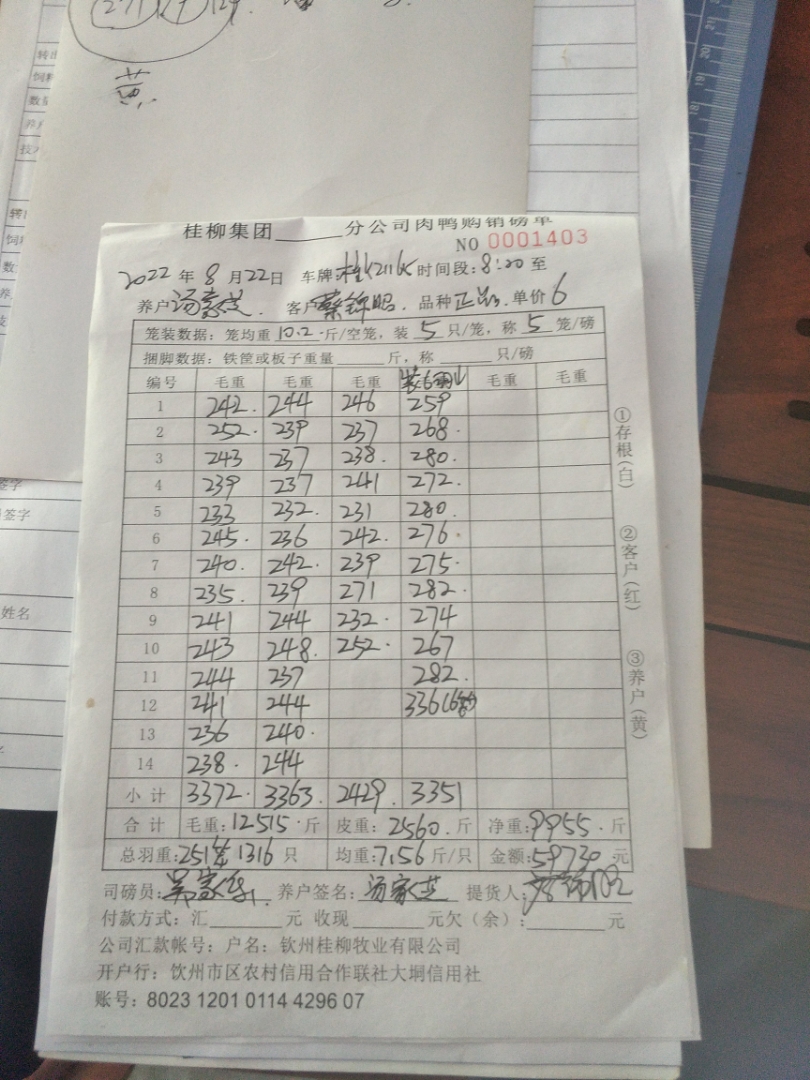 271
黄
桂柳集团______分公司肉鸭购销磅单
NO 0001403
2022年8月22日 车牌:桂K211K 时间段:8:20至
养户 汤家芝 . 客户 蔡锦昭 . 品种 正品 . 单价 6
笼装数据: 笼均重 10.2 斤/空笼, 装 5 只/笼, 称 5 笼/磅
捆脚数据: 铁筐或板子重量______斤, 称______只/磅
编号 毛重 毛重 毛重 装6只 毛重 毛重
1 242. 244 246 259
2 252. 239 237 268.
3 243 237 238. 280.
4 239 237 241 272.
5 233 232. 231 280.
6 245. 236 242. 276.
7 240. 242. 239 275.
8 235. 239 271 282.
9 241 244 232. 274
10 243 248. 252. 267
11 244 237 282.
12 241 244 336(6
13 236 240.
14 238. 244
小计 3372. 3363. 2429. 3351
合计 毛重: 12515.斤 皮重: 2560.斤 净重: 9955.斤
总羽重: 251笼 1316 只 均重: 7.56 斤/只 金额: 59730 元
司磅员: 养户签名: 汤家芝 提货人:
付款方式: 汇______元 收现______元欠(余):______元
公司汇款帐号: 户名: 钦州桂柳牧业有限公司
开户行: 钦州市区农村信用合作联社大垌信用社
账号: 8023 1201 0114 4296 07
①存根(白)
②客户(红)
③养户(黄)
签字
签字
姓名